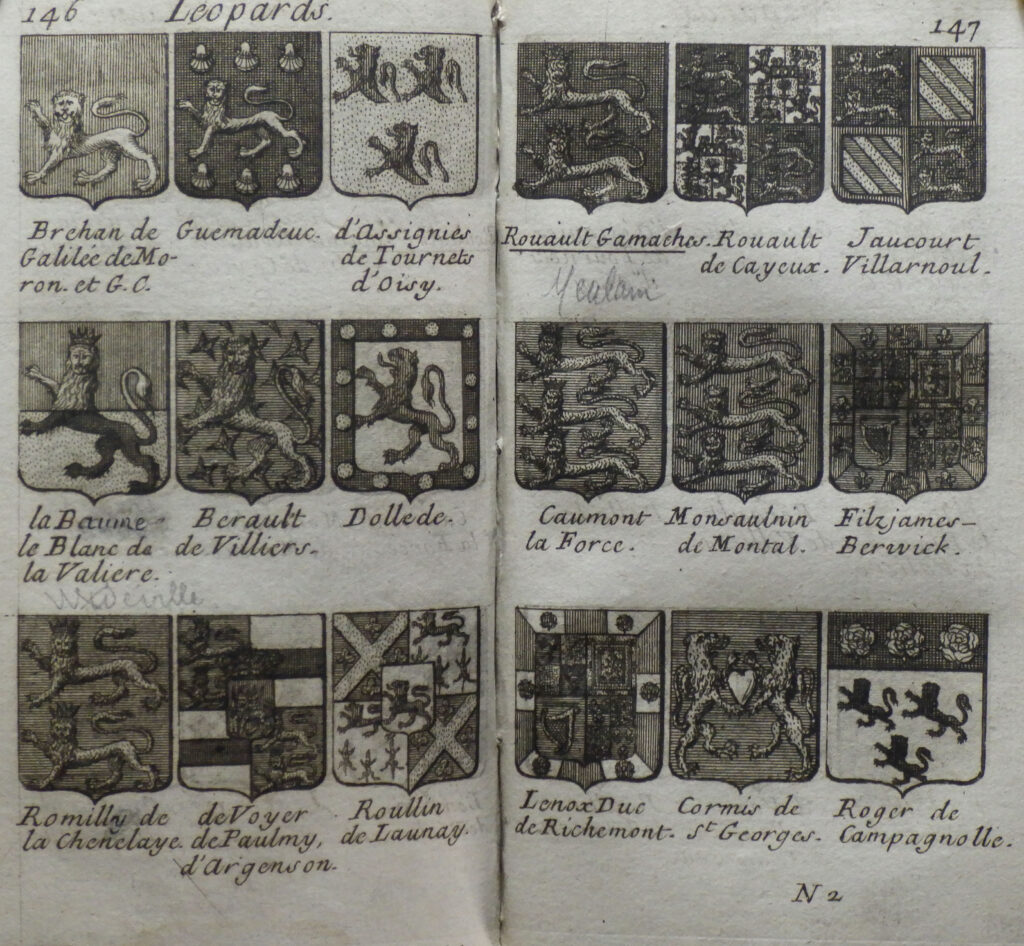 146 Leopards.
Brehan de
Galilée de Mo-
ron. et G.C.
Guemadeuc.
d'Assignies
de Tournets
d'Oisy.
la Baume
le Blanc de
la Valiere.
Berault
de Villiers.
Dollede.
Romilly de
la Chenelaye.
de Voyer
de Paulmy,
d'Argenson.
Roullin
de Launay.
147
Rouault Gamaches.
Rouault
de Cayeux.
Jaucourt
Villarnoul.
Caumont
la Force.
Monsaulnin
de Montal.
Filzjames-
Berwick.
Lenox Duc
de Richemont.
Cormis de
St Georges.
Roger de
Campagnolle.
N 2